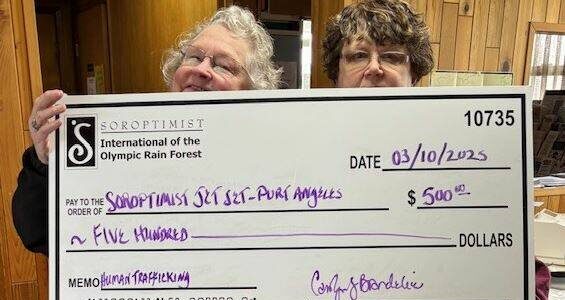 SOROPTIMIST
International of the
Olympic Rain Forest
10735
DATE 03/10/2025
PAY TO THE
ORDER OF SOROPTIMIST JET SET-PORT ANGELES $ 500.00
~ FIVE HUNDRED DOLLARS
MEMO HUMAN TRAFFICKING